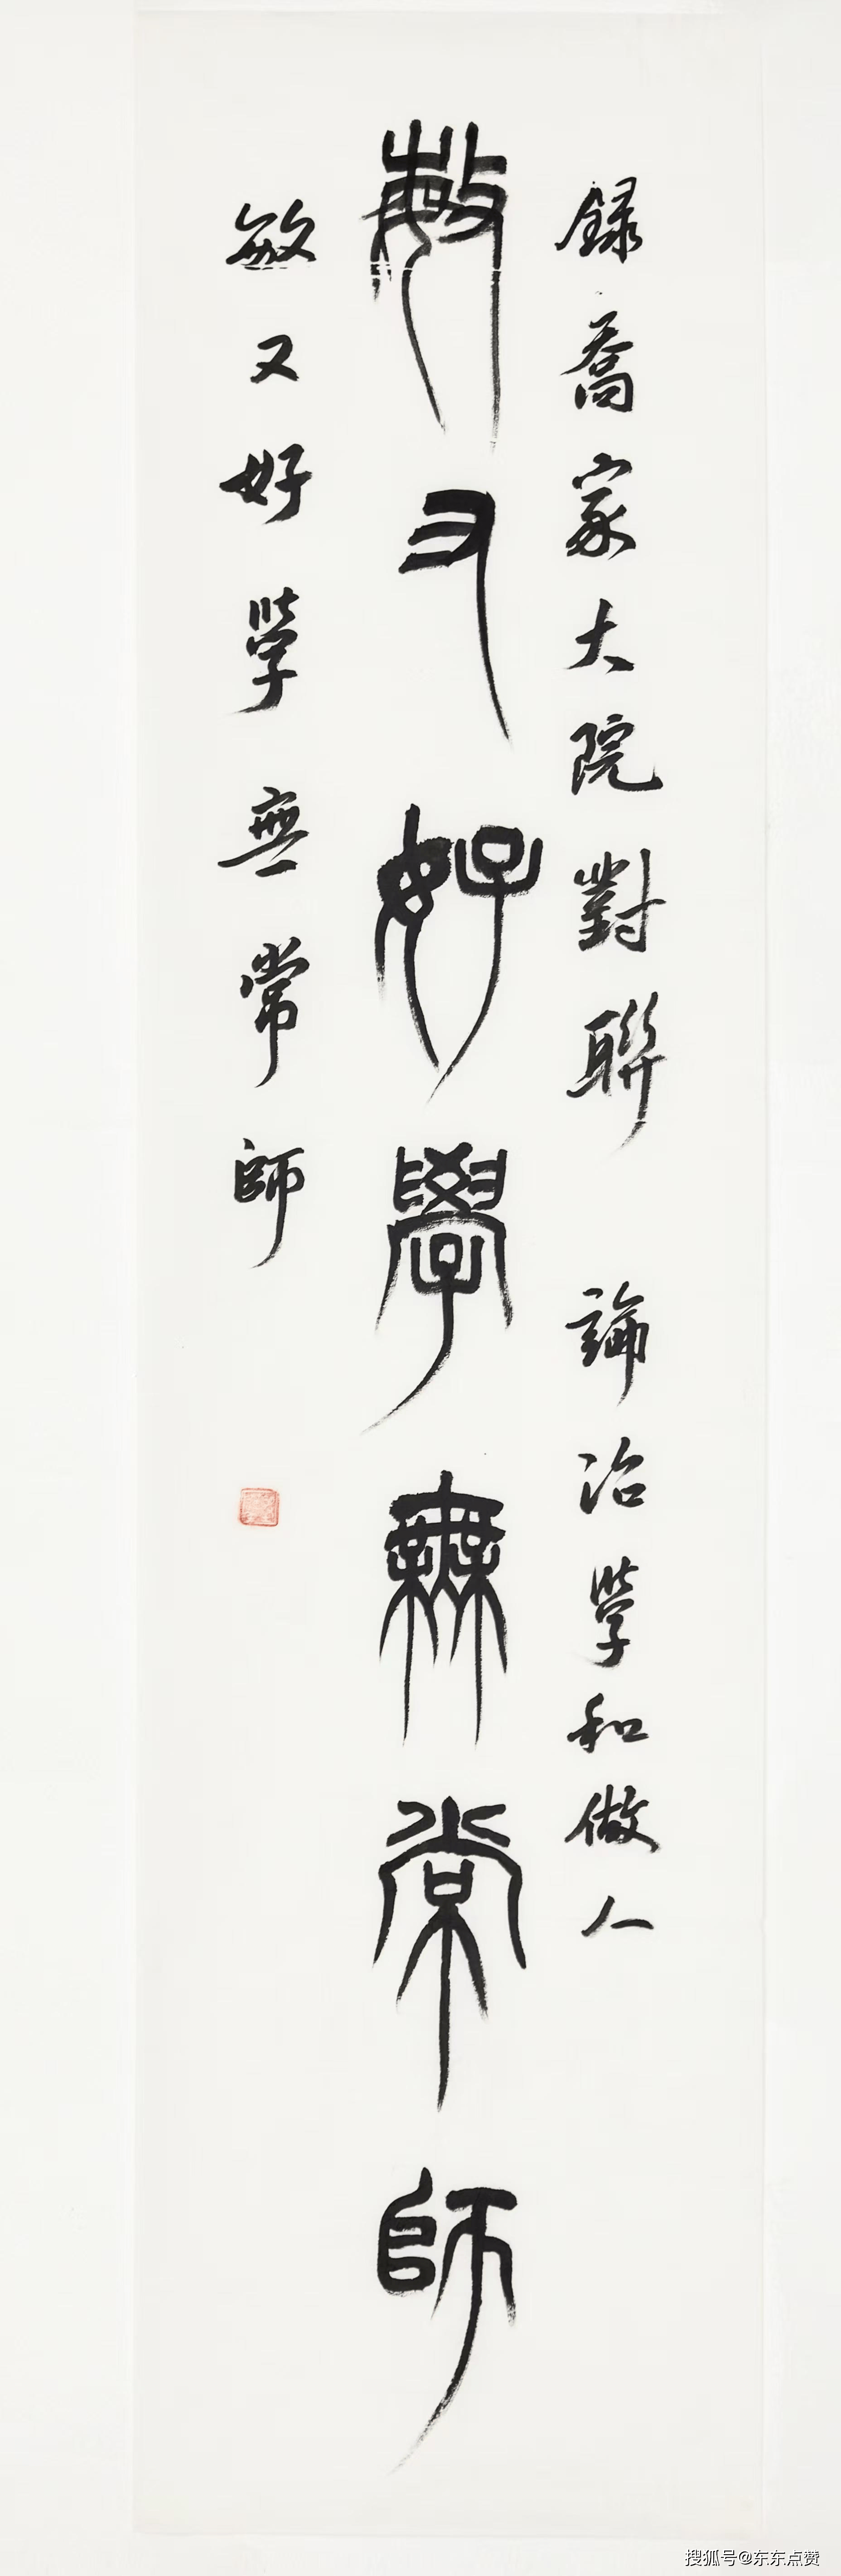 録喬家大院對聯 論治學和做人
敏又好學無常師
敏又好學無常師
搜狐号@东东点赞